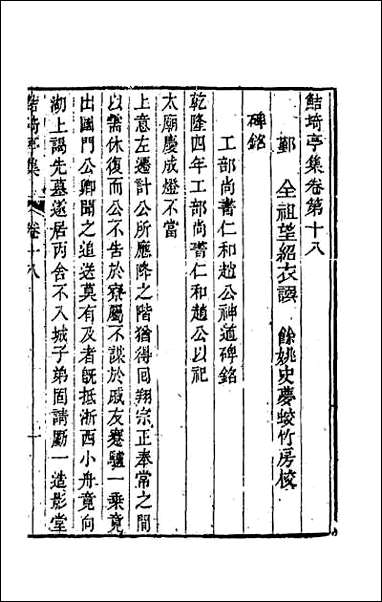 鮚埼亭集卷第十八
鄞　全祖望紹衣譔　餘姚史夢蛟竹房校
碑銘
工部尚書仁和趙公神道碑銘
乾隆四年工部尚書仁和趙公以祀
太廟慶成燈不當
上意左遷計公所應降之階猶得囘翔宗正奉常之間
以需休復而公不告於寮屬不謀於戚友蹇驢一乗竟
出國門公卿聞之追送莫有及者旣抵浙西小舟竟向
湖上謁先墓遂居丙舍不入城子弟固請勵一造影堂
鮚埼亭集　卷十八　一